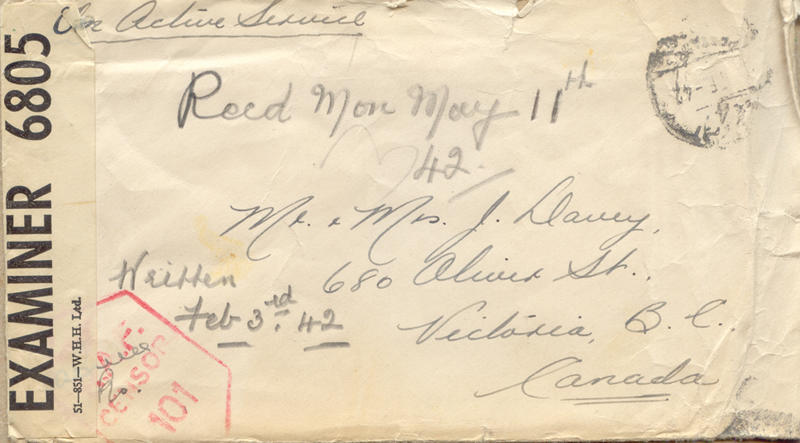 On Active Service
Recd Mon May 11th
42
Mr. & Mrs. J. Davey,
680 Oliver St.,
Victoria, B.C.
Canada
Written
Feb 3rd. 42
EXAMINER 6805
51—851—W.H.H. Ltd.
CENSOR
101